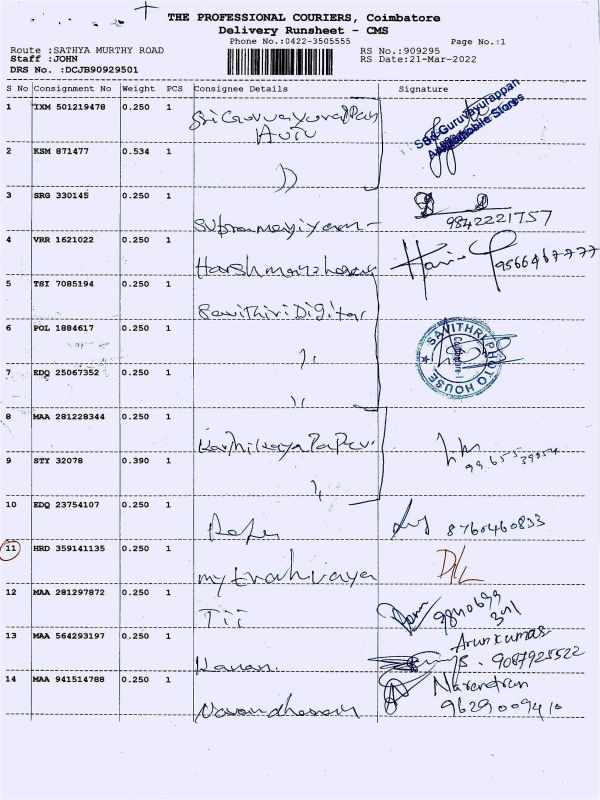 THE PROFESSIONAL COURIERS, Coimbatore
Delivery Runsheet - CMS
Phone No.:0422-3505555 Page No.:1
Route :SATHYA MURTHY ROAD RS No.:909295
Staff :JOHN RS Date:21-Mar-2022
DRS No. :DCJB90929501
S No Consignment No Weight PCS Consignee Details Signature
1 IXM 501219478 0.250 1 Sri Guruvayurappan Auto Sri Guruvayurappan Automobile Stores
2 KSM 871477 0.534 1 ,,
3 SRG 330145 0.250 1 9842221757
4 VRR 1621022 0.250 1 9566467777
5 TSI 7085194 0.250 1 Savithiri Digital
6 POL 1884617 0.250 1 ,, SAVITHRI PHOTO HOUSE Coimbatore-1
7 EDQ 25067352 0.250 1 ,,
8 MAA 281228344 0.250 1
9 STY 32078 0.390 1 ,,
10 EDQ 23754107 0.250 1 8760460833
11 HRD 359141135 0.250 1 D/L
12 MAA 281297872 0.250 1 9840699
13 MAA 564293197 0.250 1 Kanan Arunkumar
9087925522
14 MAA 941514788 0.250 1 Narendran
9629009410